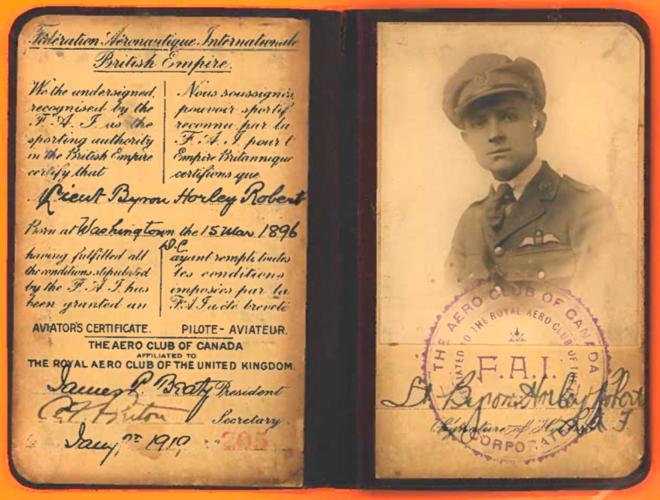 Fédération Aéronautique Internationale
British Empire.
We the undersigned
recognised by the
F. A. I. as the
sporting authority
in the British Empire
certify that
Nous soussignés
pouvoir sportif
reconnu par la
F. A. I. pour l'
Empire Britannique
certifions que
Lieut Byron Horley Robert
Born at Washington on the 15 Mar. 1896
D.C.
having fulfilled all
the conditions stipulated
by the F. A. I. has
been granted an
ayant rempli toutes
les conditions
imposées par la
F. A. I. a été breveté
AVIATOR'S CERTIFICATE. PILOTE-AVIATEUR.
THE AERO CLUB OF CANADA
AFFILIATED TO
THE ROYAL AERO CLUB OF THE UNITED KINGDOM.
President
Secretary
1919
205
THE AERO CLUB OF CANADA
TO THE ROYAL AERO CLUB OF
F.A.I.
Lt Byron Horley Robert
Signature of